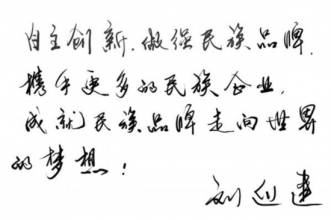 自主创新.做强民族品牌.
携手更多的民族企业.
成就民族品牌走向世界
的梦想!
刘建